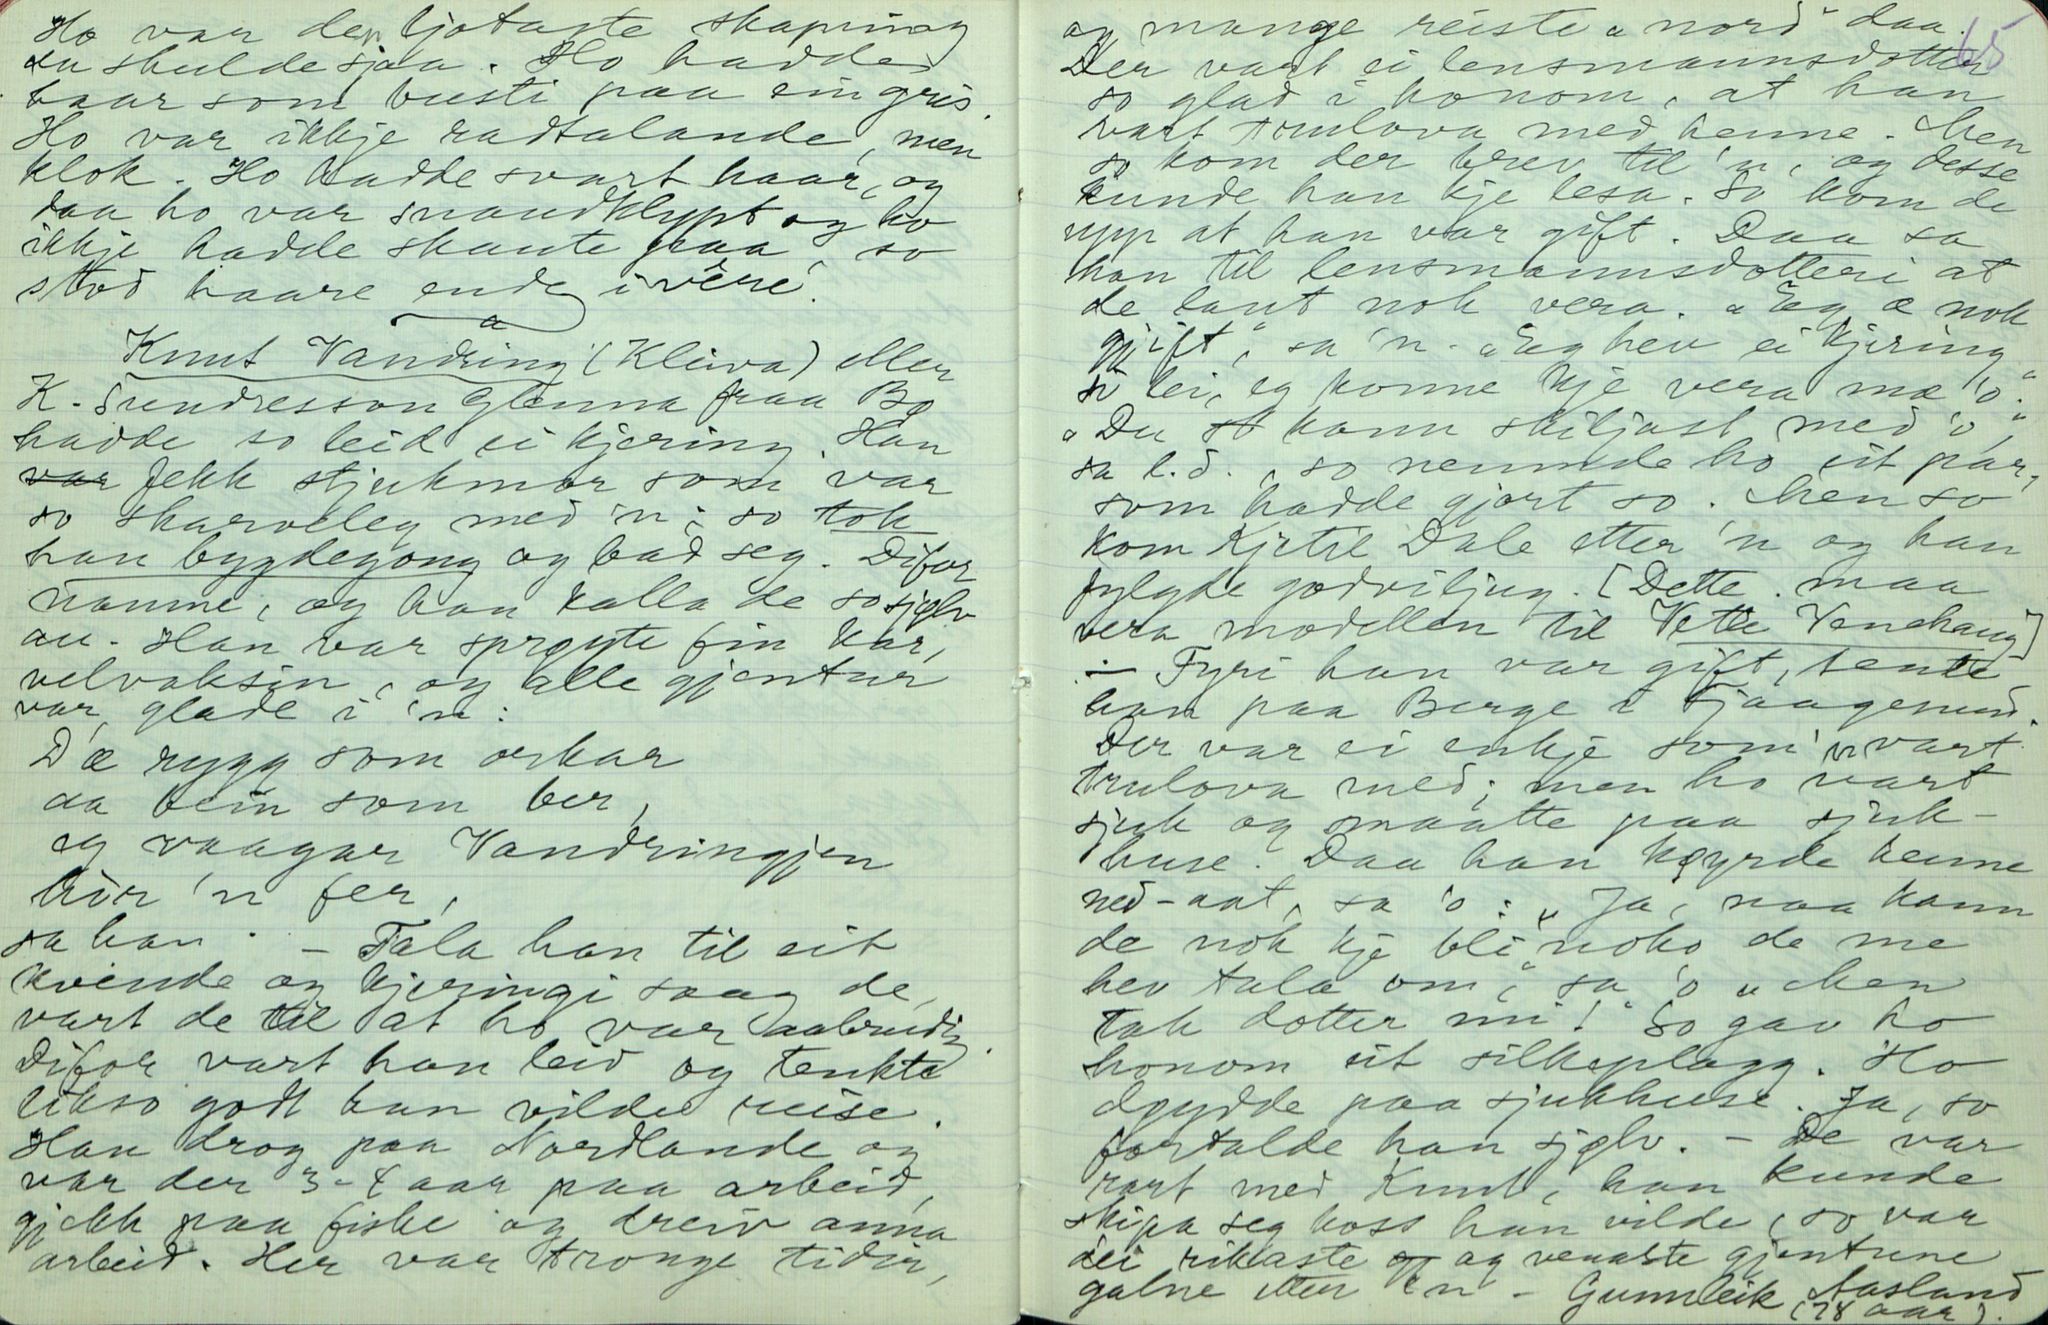 Ho var den ljotaste skapning
du skulde sjaa. Ho hadde
haar som busti paa ein gris.
Ho var ikkje radtalande, men
klok. Ho hadde svart haar, og
daa ho var snaudklypt og ho
ikkje hadde skaute paa, so
stod haare ende i være.
Knut Vandring (Kleiva) eller
K. Sundresson Glenna fraa Bø
hadde so leid ei kjering. Han
var fekk stjukmor som var
so skarveleg med 'n; so tok
han bygdegong og bad seg. Difor
namne, og han kalla de so sjølv
au. Han var sprøyte fin kar,
velvaksin, og alle gjentur
var glade i 'n:
D'æ rygg som orkar
aa bein som ber,
eg vaagar Vandringjen
hòr 'n fer,
sa han. – Tala han til eit
kvende og kjeringi saag de,
vart de til at ho var aabruidig.
Difor vart han leid og tenkte
likso godt han vilde reise.
Han drog paa Nordlande og
var der 3-4 aar paa arbeid,
gjekk paa fiske og dreiv anna
arbeid. Her var tronge tidir,
65
og mange reiste "nord" daa.
Der vart ei lensmannsdotter
so glad i honom, at han
vart trulova med henne. Men
so kom der brev til 'n, og desse
kunde han kje lesa. So kom de
upp at han var gift. Daa sa
han til lensmannsdotteri at
de laut nok vera. "Eg æ nok
gjift," sa 'n. "Eg hev ei kjering
so lei, eg konne kje vera mæ 'o."
"Du kann skiljast med 'o,"
sa l.d., so nemnde ho eit par,
som hadde gjort so. Men so
kom Kjetil Dale etter 'n og han
fylgde godviljug. [Dette maa
vera modellen til Vetle Venehaug]
– Fyri han var gift, tente
han paa Berge i Tjaagesund.
Der var ei enkje som 'n vart
trulova med; men ho vart
sjuk og maatte paa sjuk-
huse. Daa han køyrde henne
ned-aat, sa 'o: "Ja, naa kann
de nok kje bli noko de me
hev tala om," sa 'o "Men
tak dotter mi!" So gav ho
honom eit silkeplagg. Ho
døydde paa sjukhuse. Ja, so
fortalde han sjølv. – De var
rart med Knut, han kunde
skipa seg koss han vilde, so var
dei rikaste og venaste gjentune
galne etter 'n – Gunnleik Aasland
(78 aar).